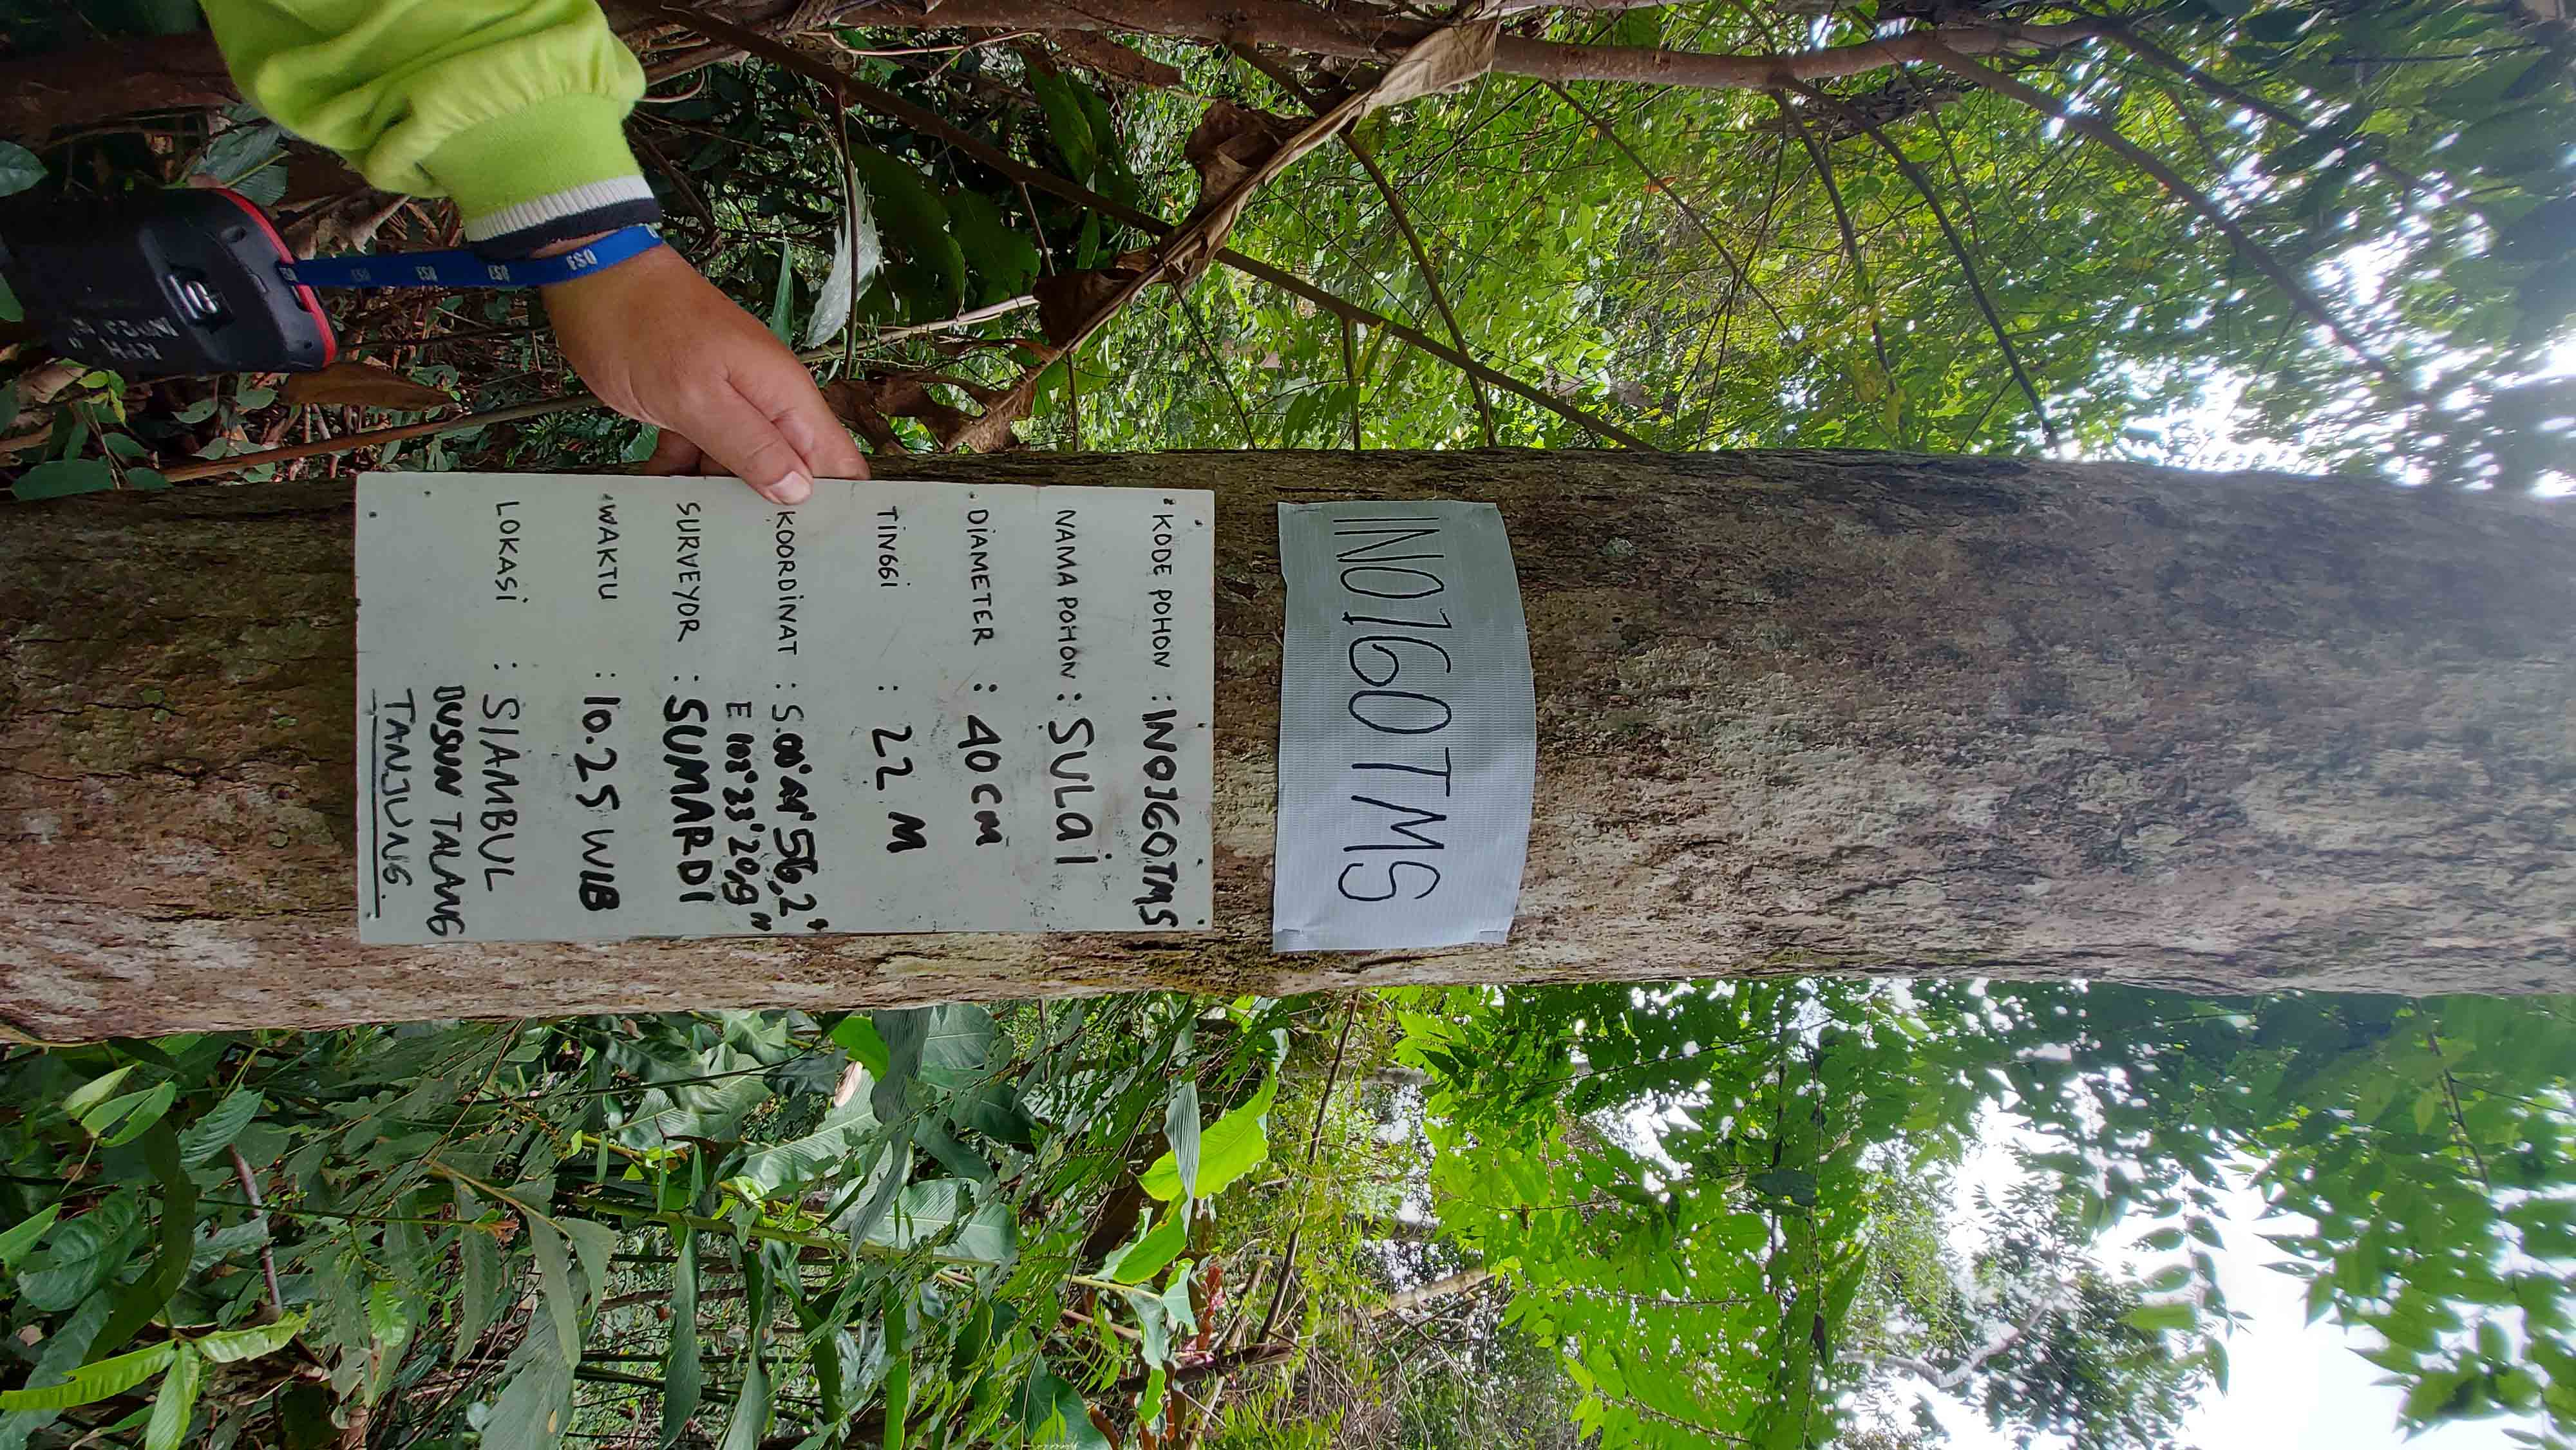 INO160TMS
KODE POHON : INO160TMS
NAMA POHON : SULAI
DIAMETER : 40 CM
TINGGI : 22 M
KOORDINAT : S.00° 44' 56,2"
E 102° 33' 20,9"
SURVEYOR : SUMARDI
WAKTU : 10.25 WIB
LOKASI : SIAMBUL
DUSUN TALANG
TANJUNG.
DSJ DSJ DSJ DSJ